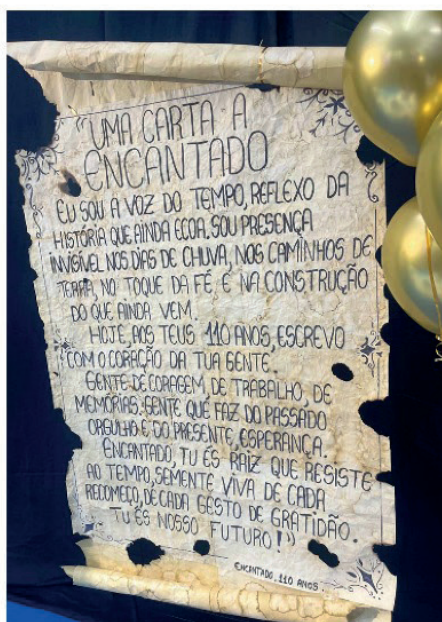 "UMA CARTA A
ENCANTADO
EU SOU A VOZ DO TEMPO, REFLEXO DA
HISTÓRIA QUE AINDA ECOA. SOU PRESENÇA
INVISÍVEL NOS DIAS DE CHUVA, NOS CAMINHOS DE
TERRA, NO TOQUE DA FÉ E NA CONSTRUÇÃO
DO QUE AINDA VEM.
HOJE, AOS TEUS 110 ANOS, ESCREVO
COM O CORAÇÃO DA TUA GENTE.
GENTE DE CORAGEM, DE TRABALHO, DE
MEMÓRIAS. GENTE QUE FAZ DO PASSADO
ORGULHO E DO PRESENTE, ESPERANÇA.
ENCANTADO, TU ÉS RAIZ QUE RESISTE
AO TEMPO, SEMENTE VIVA DE CADA
RECOMEÇO, DE CADA GESTO DE GRATIDÃO.
TU ÉS NOSSO FUTURO!"
ENCANTADO. 110 ANOS.